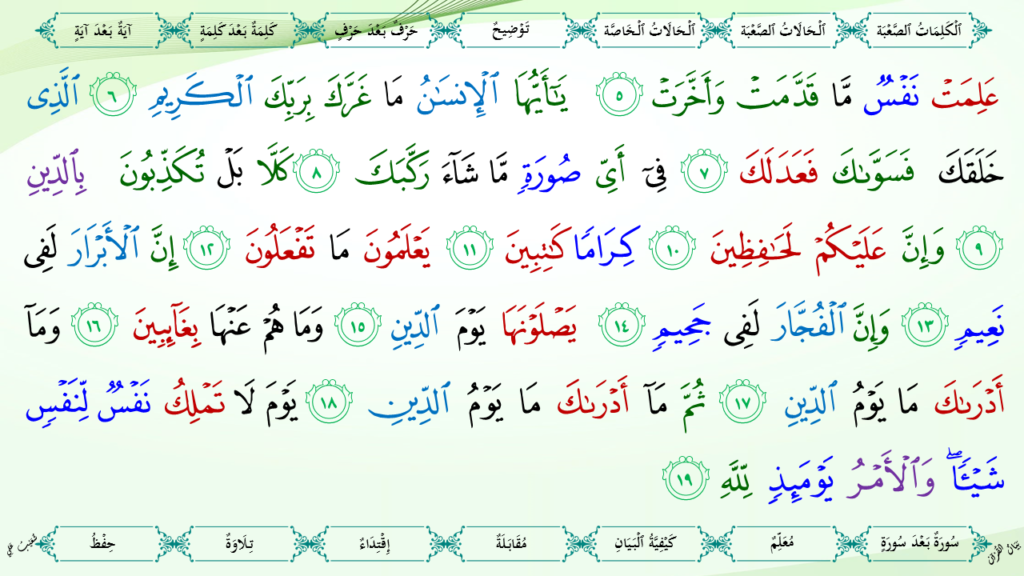 اَلْكَلِمَاتُ الصَّعْبَة اَلْحَالَاتُ الصَّعْبَة اَلْحَالَاتُ الْخَاصَّة تَوْضِيحٌ حَرْفٌ بَعْدَ حَرْفٍ كَلِمَةٌ بَعْدَ كَلِمَةٍ آيَةٌ بَعْدَ آيَةٍ
عَلِمَتْ نَفْسٌ مَّا قَدَّمَتْ وَأَخَّرَتْ ٥ يَـٰٓأَيُّهَا ٱلْإِنسَـٰنُ مَا غَرَّكَ بِرَبِّكَ ٱلْكَرِيمِ ٦ ٱلَّذِى
خَلَقَكَ فَسَوَّىٰكَ فَعَدَلَكَ ٧ فِىٓ أَىِّ صُورَةٍ مَّا شَآءَ رَكَّبَكَ ٨ كَلَّا بَلْ تُكَذِّبُونَ بِٱلدِّينِ
٩ وَإِنَّ عَلَيْكُمْ لَحَـٰفِظِينَ ١٠ كِرَامًا كَـٰتِبِينَ ١١ يَعْلَمُونَ مَا تَفْعَلُونَ ١٢ إِنَّ ٱلْأَبْرَارَ لَفِى
نَعِيمٍ ١٣ وَإِنَّ ٱلْفُجَّارَ لَفِى جَحِيمٍ ١٤ يَصْلَوْنَهَا يَوْمَ ٱلدِّينِ ١٥ وَمَا هُمْ عَنْهَا بِغَآئِبِينَ ١٦ وَمَآ
أَدْرَىٰكَ مَا يَوْمُ ٱلدِّينِ ١٧ ثُمَّ مَآ أَدْرَىٰكَ مَا يَوْمُ ٱلدِّينِ ١٨ يَوْمَ لَا تَمْلِكُ نَفْسٌ لِّنَفْسٍ
شَيْـًٔا ۖ وَٱلْأَمْرُ يَوْمَئِذٍ لِّلَّهِ ١٩
سُورَةٌ بَعْدَ سُورَةٍ مُعَلِّمٌ كَيْفِيَّةُ الْبَيَانِ مُقَابَلَةٌ إِقْتِدَاءٌ تِلَاوَةٌ حِفْظُ